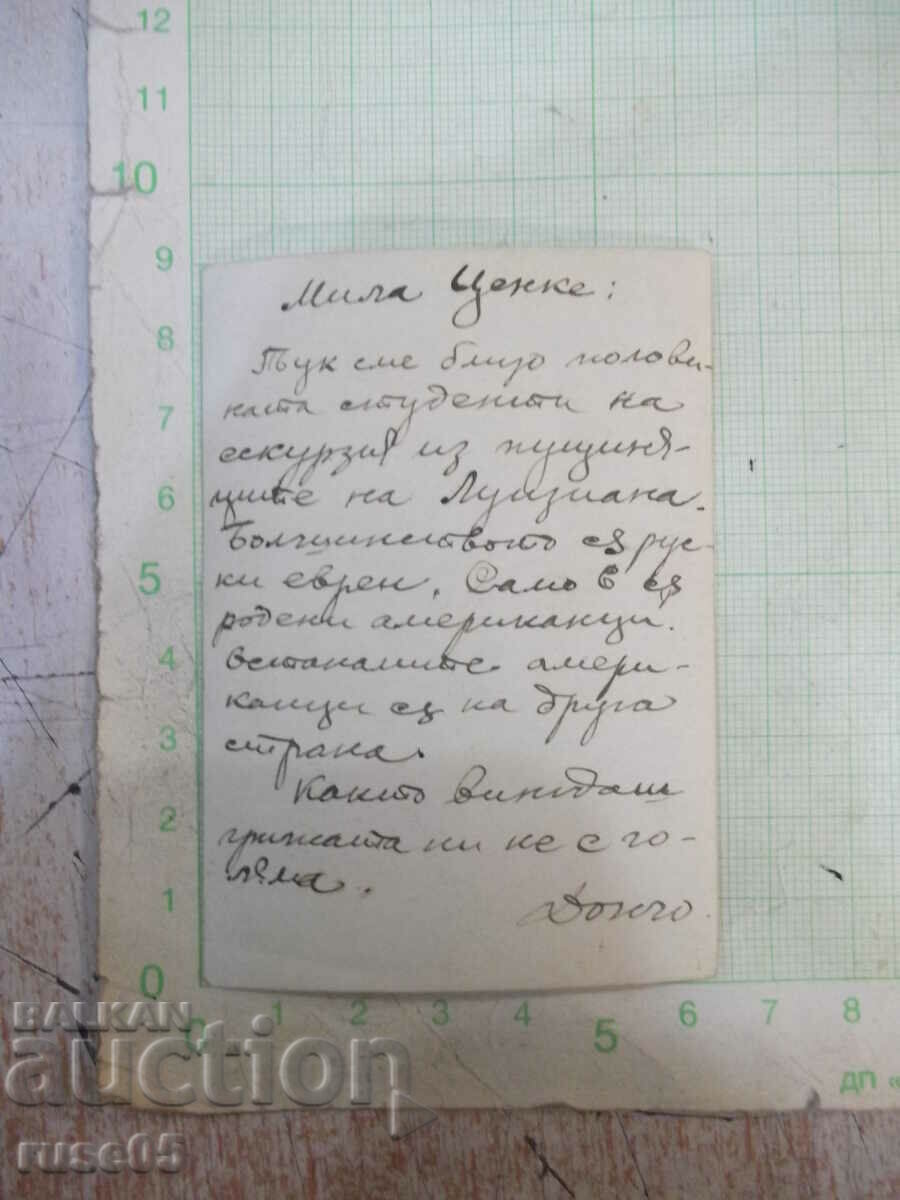 12
11
10
9
8
7
6
5
4
3
2
1
0
Мила Ценке:
Тук сме близо полови-
ната студенти на
ескурзия из пущиня-
ците на Луизиана.
Болшинството са рус-
ки евреи. Само 6 са
родени американци.
Останалите амери-
канци са на друга
страна.
Както виждаш
грижата ни не е го-
ляма.
Дончо
0 1 2 3 4 5 6 7 8
ДП «
BALKAN
auction
ruse05